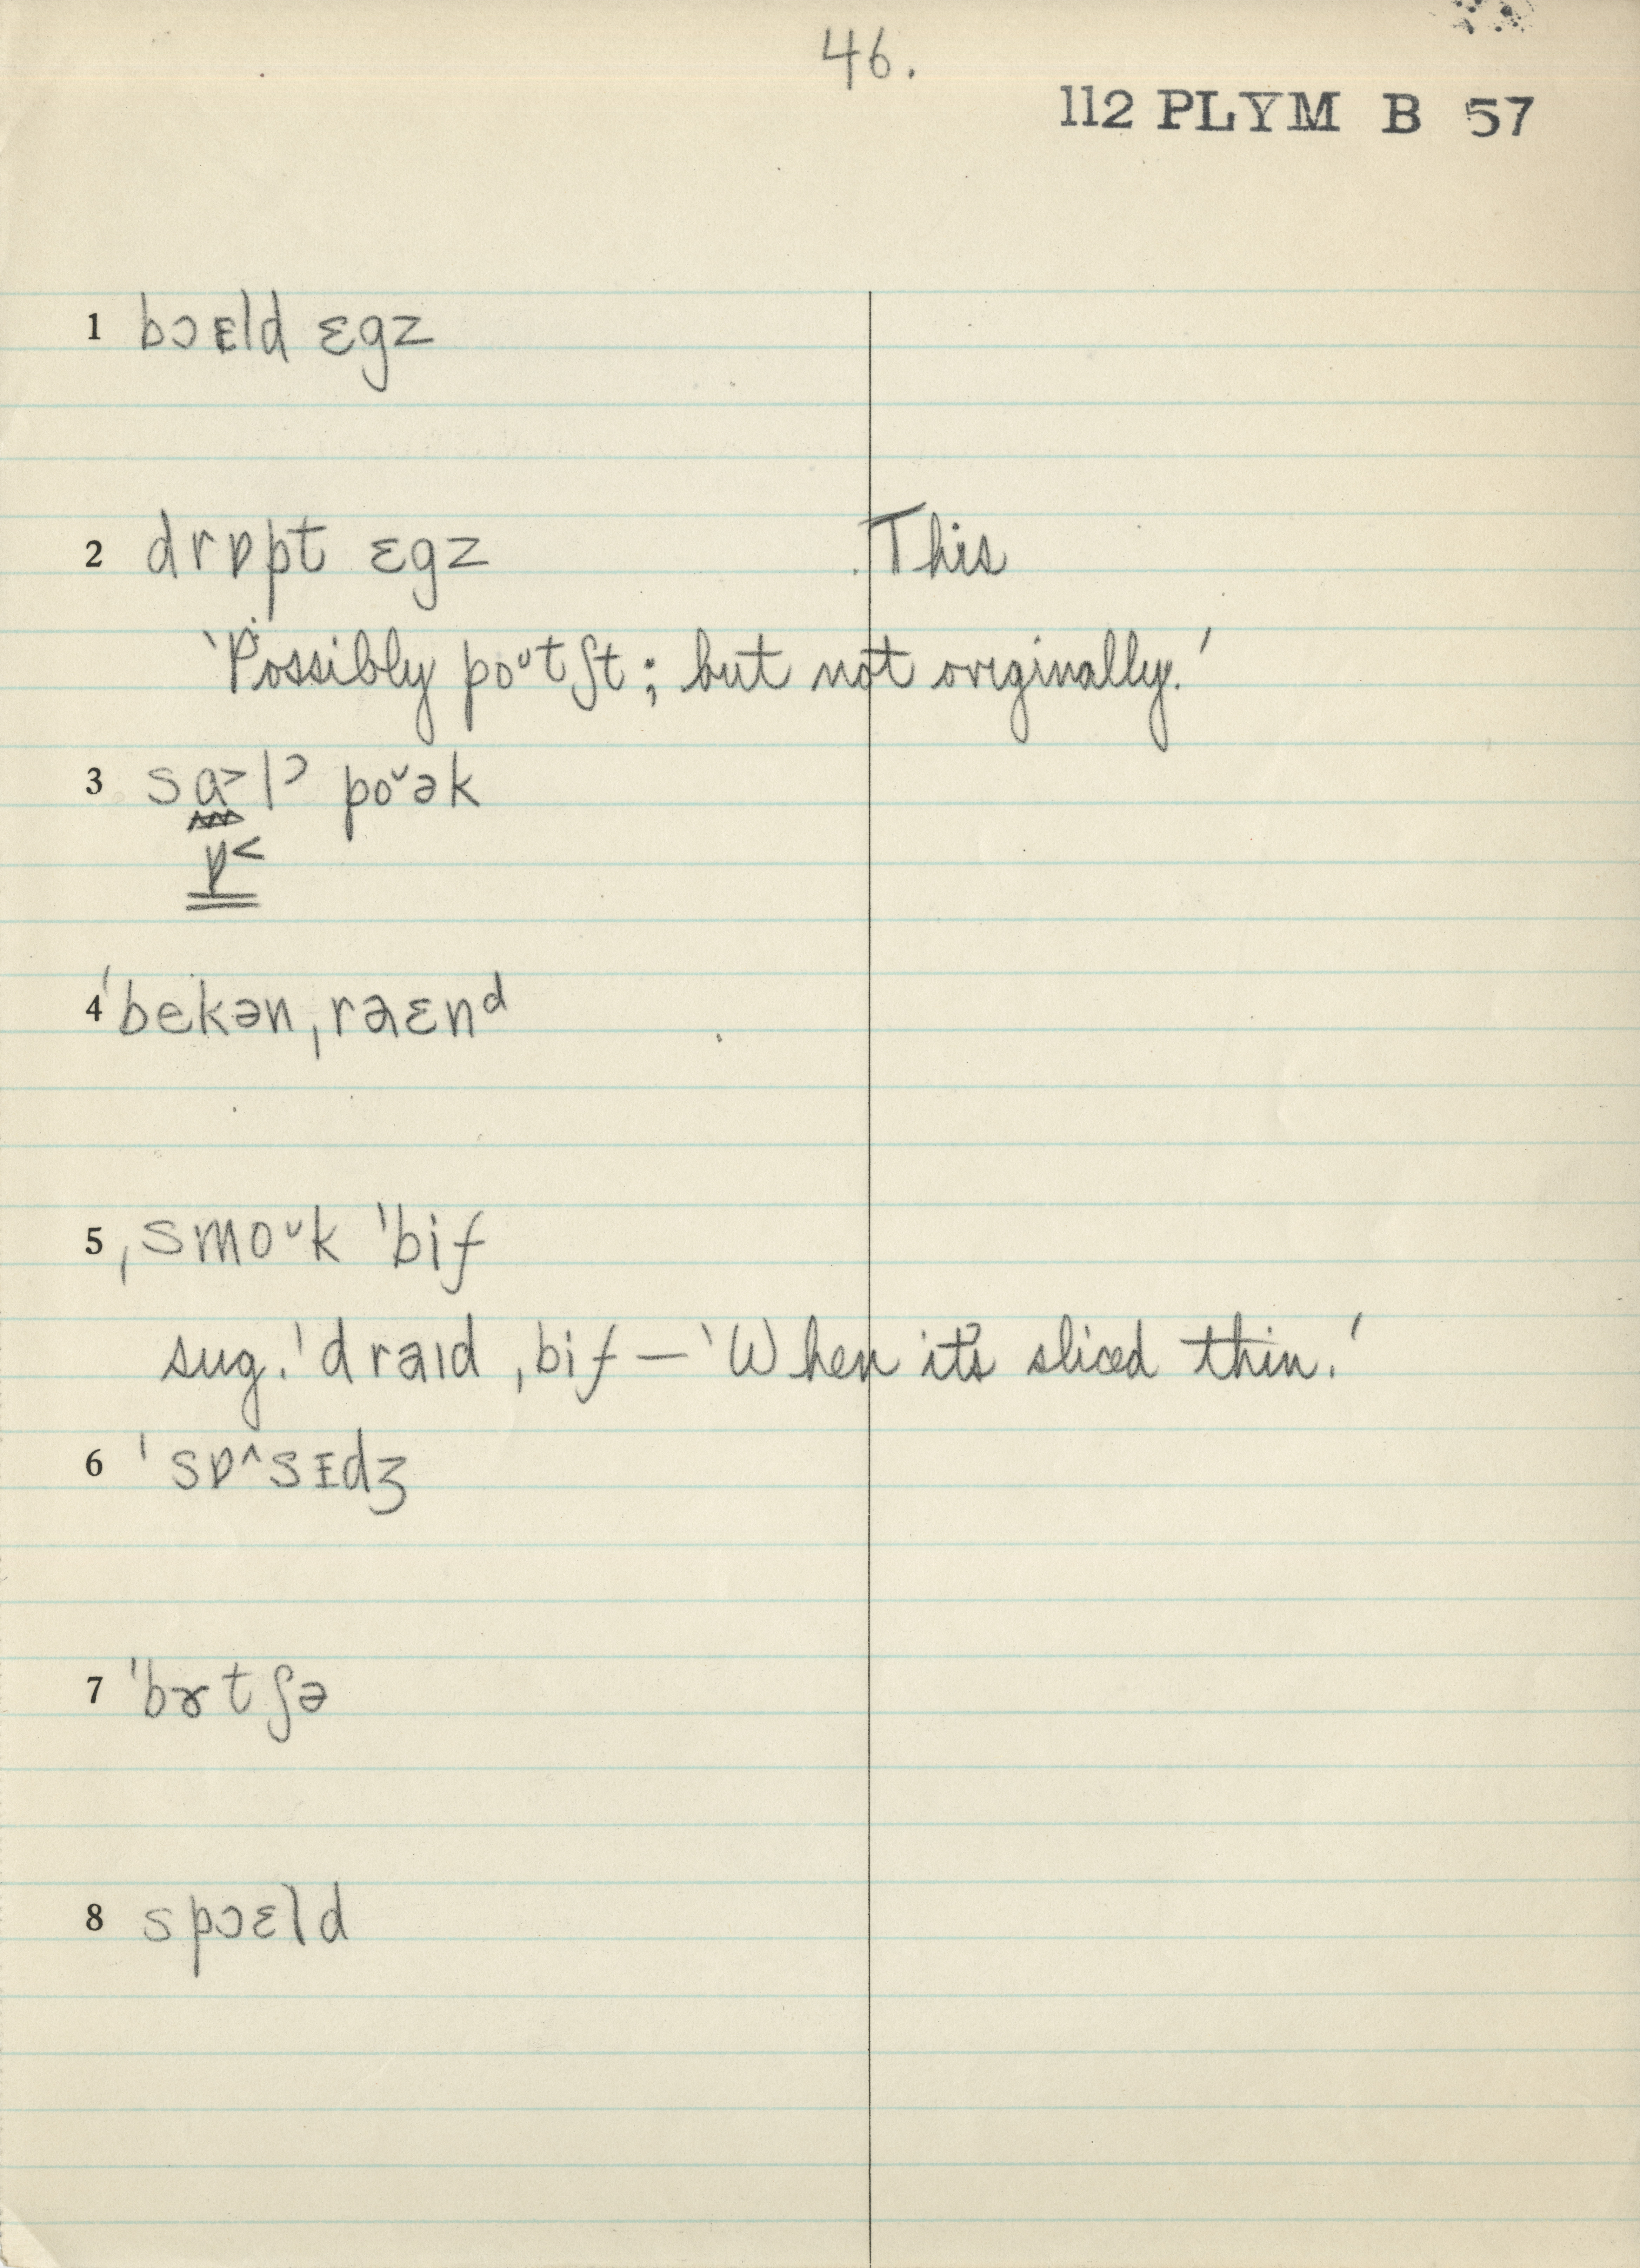 46.
112 PLYM B 57
1 bɔɛld ɛgz
2 drɒpt ɛgz This
‵Possibly poᶷtʃt; but not originally.′
3 sɑ˃lᵓ po˅ək
ɒ˂
4 ˈbekən ˌraɛnᵈ
5 ˌsmoᶷk ˈbif
sug. ˈdraɪd ˌbif — ‵When it's sliced thin.′
6 ˈsɒ^sɪdʒ
7 ˈbɝtʃə
8 spɔɛld